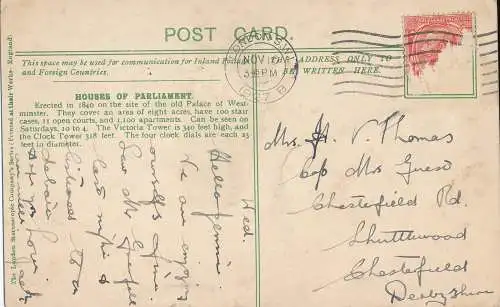 POST CARD.
This space may be used for communication for Inland
and Foreign Countries.
THE ADDRESS ONLY TO
BE WRITTEN HERE.
LONDON S.W.
NOV 10
PM
HOUSES OF PARLIAMENT.
Erected in 1840 on the site of the old Palace of West-
minster. They cover an area of eight acres, have 100 stair
cases, 11 open courts, and 1,100 apartments. Can be seen on
Saturdays, 10 to 4. The Victoria Tower is 340 feet high, and
the Clock Tower 318 feet. The four clock dials are each 23
feet in diameter.
The London Stereoscopic Company's Series (Printed at their Works—England)
Wed.
Hello Jennie
We are enjoying
ourselves fine
Saw
last night &
listened to a
debate
Mrs. H. V. Thomas
c/o Mrs Guest
Chesterfield Rd.
Shuttlewood
Chesterfield
Derbyshire